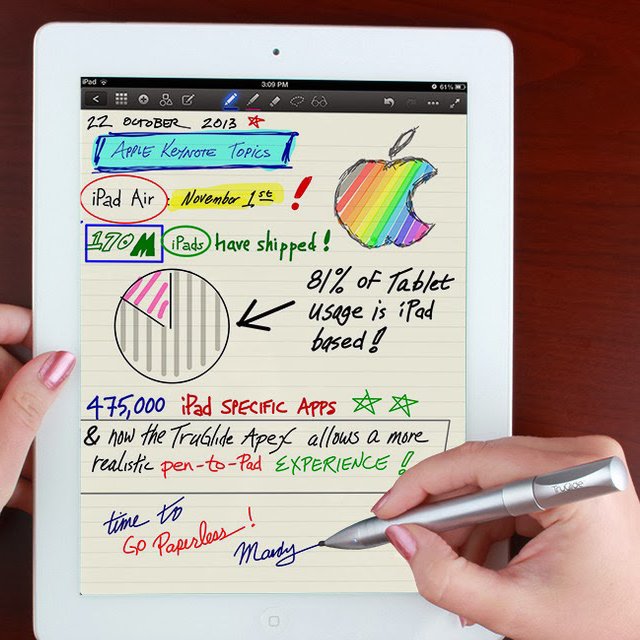 iPad
3:09 PM
61%
22 OCTOBER 2013
APPLE KEYNOTE TOPICS
iPad Air November 1st !
170M iPads have shipped!
81% of Tablet
usage is iPad
based!
475,000 iPad SPECIFIC APPS
& now the TruGlide Apex allows a more
realistic pen-to-Pad EXPERIENCE!
time to
Go Paperless!
Mandy
TruGlide